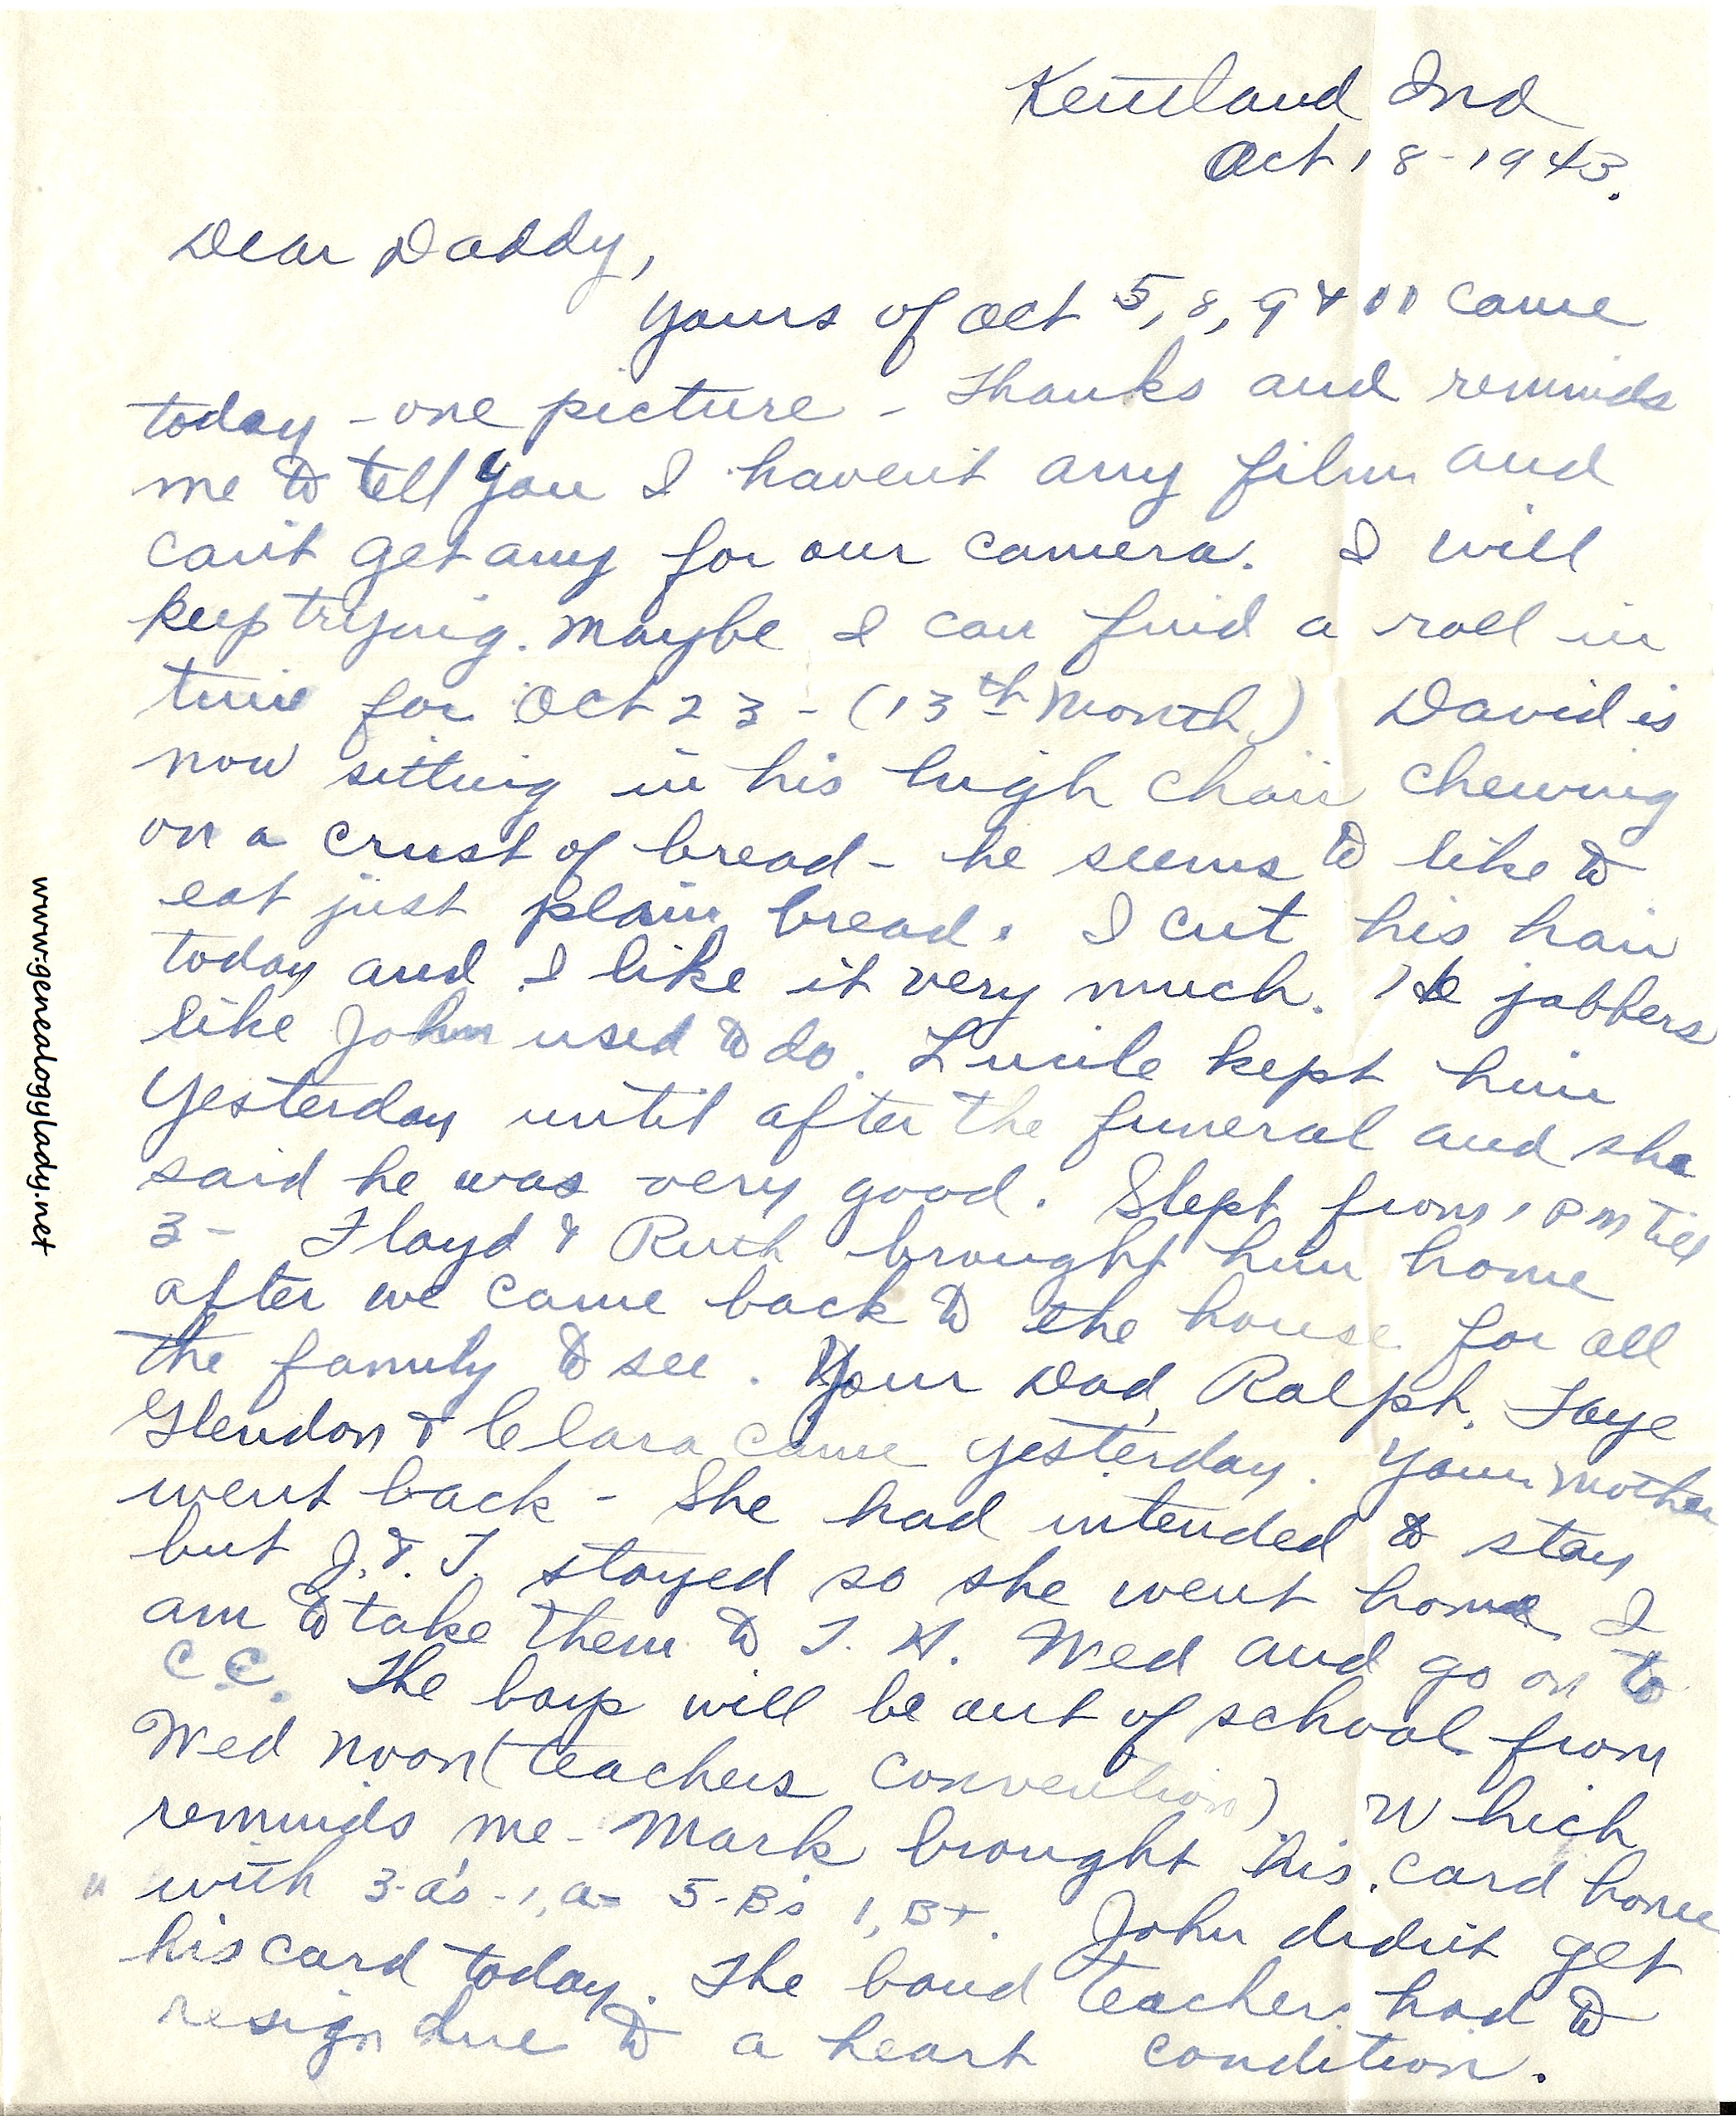 Kentland Ind
Oct 18-1943.
Dear Daddy,
Yours of Oct 5, 8, 9 & 11 came
today - one picture - Thanks and reminds
me to tell you I haven't any film and
can't get any for our camera. I will
keep trying. Maybe I can find a roll in
time for Oct 23 - (13th month) David is
now sitting in his high chair chewing
on a crust of bread - he seems to like to
eat just plain bread. I cut his hair
today and I like it very much. He jabbers
like John used to do. Lucile kept him
yesterday until after the funeral and she
said he was very good. Slept from 1 PM till
3 - Floyd & Ruth brought him home
after we came back to the house for all
the family to see. Your Dad, Ralph, Faye
Glendon & Clara came yesterday. Your mother
went back - She had intended to stay
but J. & T. stayed so she went home I
am to take them to T. H. Wed and go on to
C.C. The boys will be out of school from
Wed noon (teachers convention) Which
reminds me - Mark brought his card home
" with 3-a's - 1, a- 5-B's 1, B+. John didn't get
his card today. The band teacher had to
resign due to a heart condition.
www.genealogylady.net